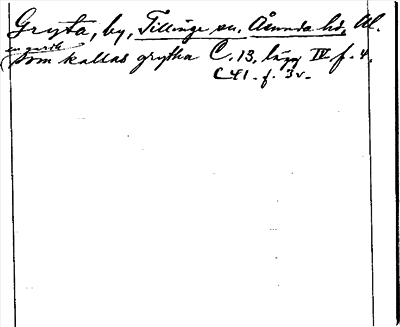 Gryta, by, Tillinge sn. Åsunda hd, Upl.
en gardh
som kallas grytha C.13, lägg IV f. 4.
C 41. f. 3v.